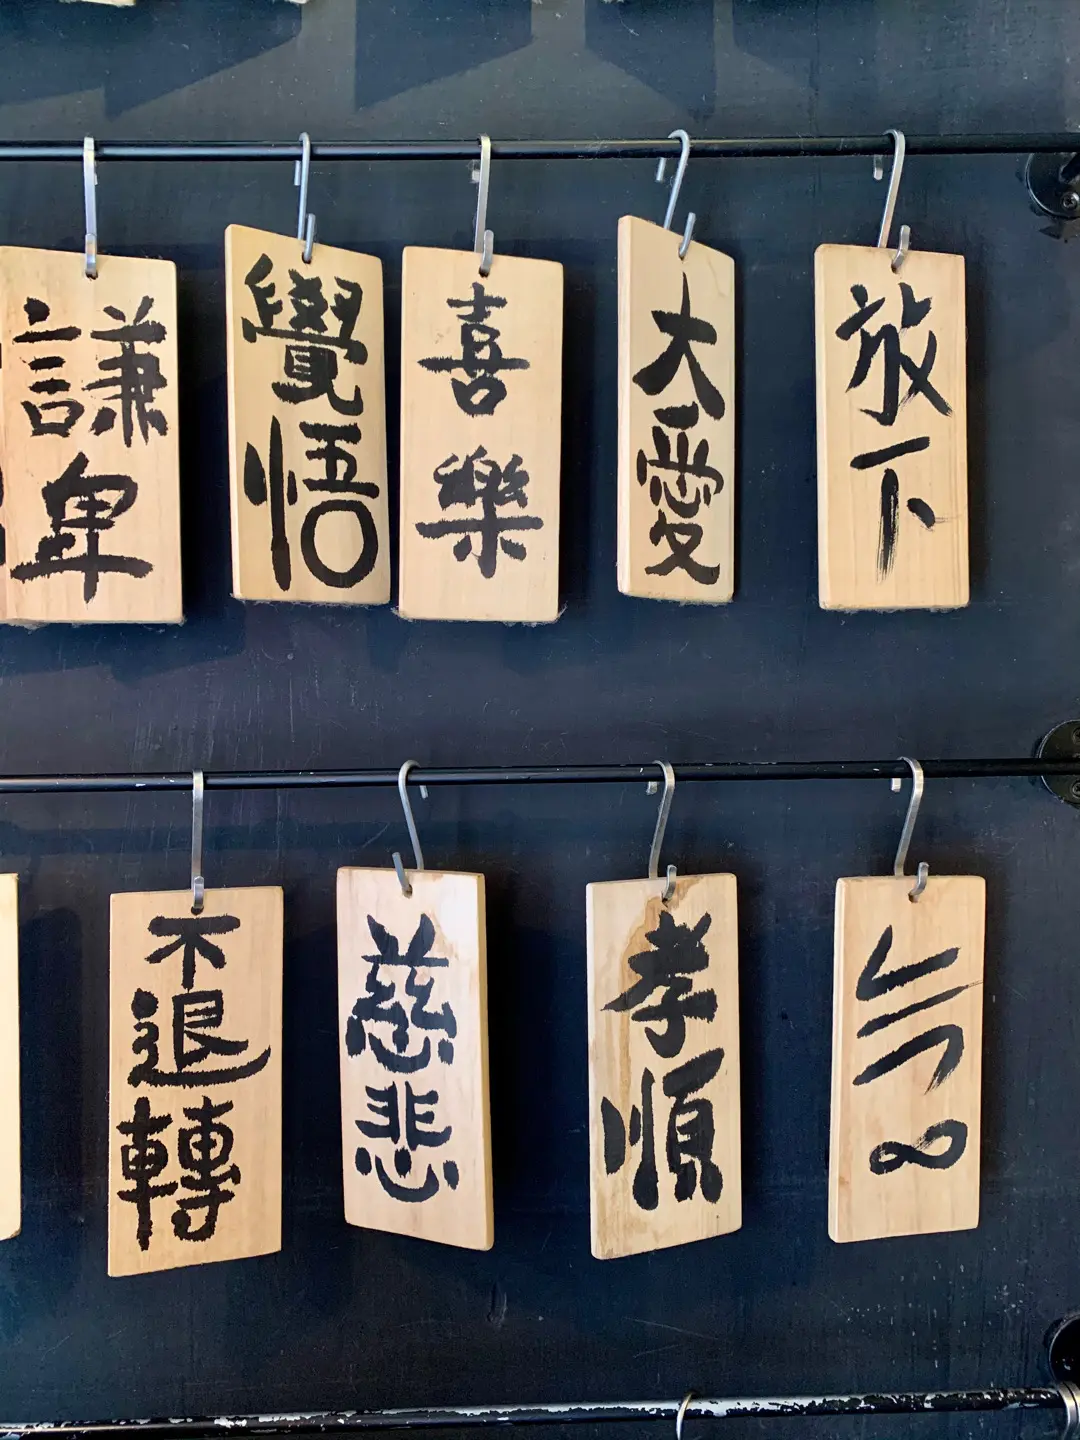 謙卑
覺悟
喜樂
大愛
放下
不退轉
慈悲
孝順